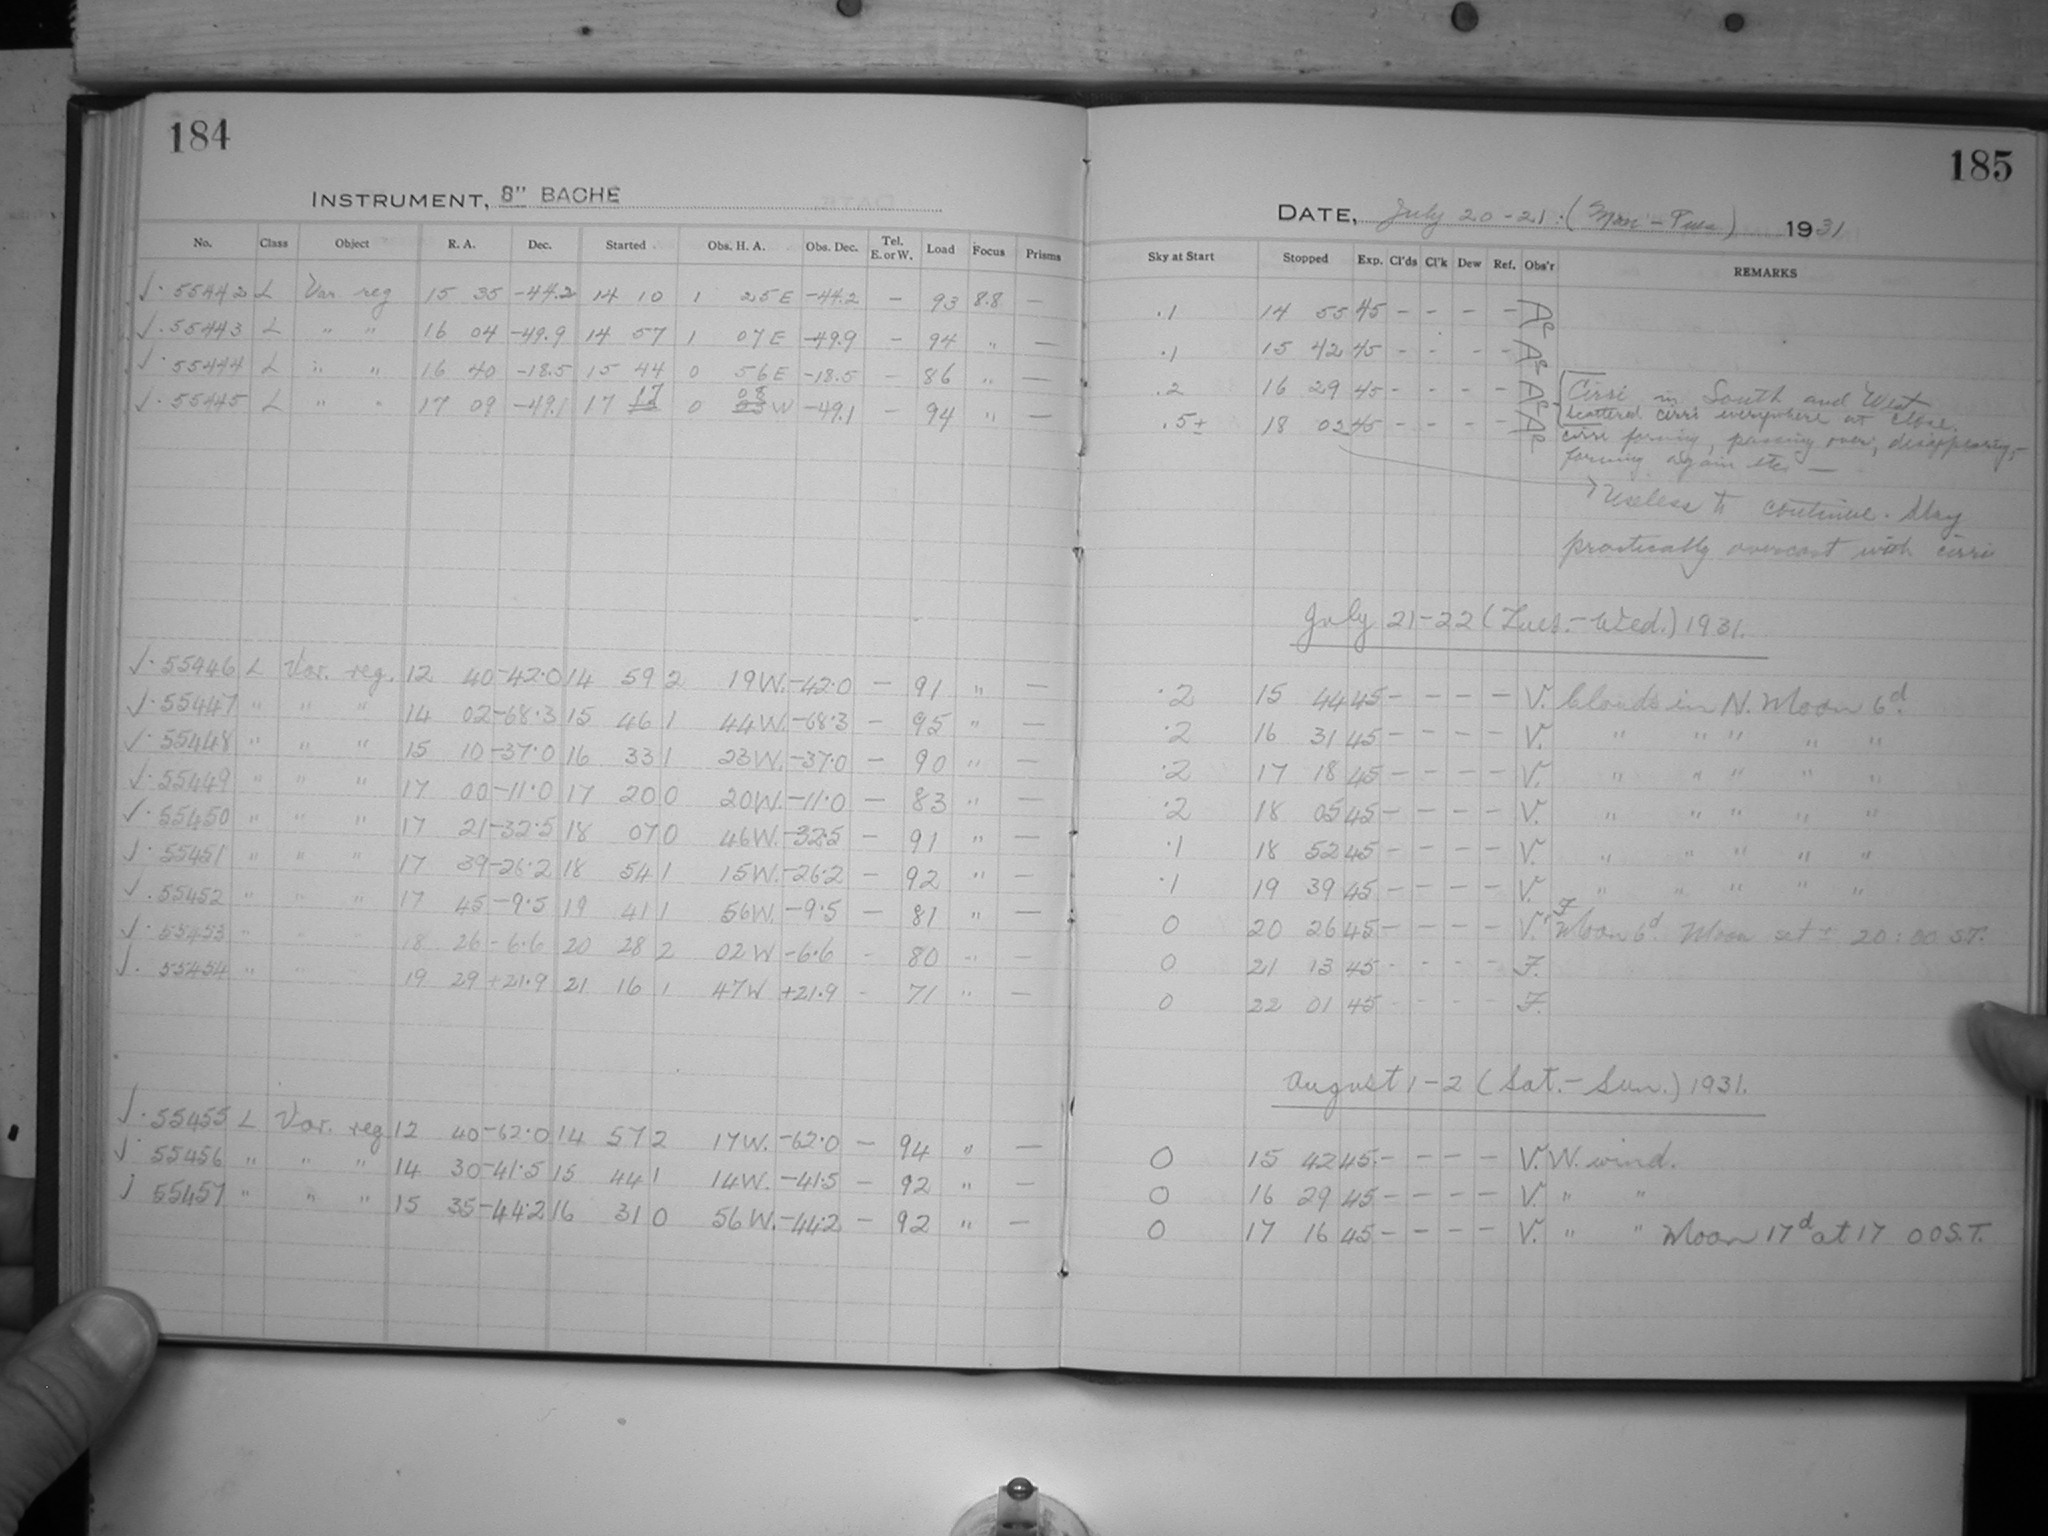 184
INSTRUMENT, 8" BACHE
No. Class Object R. A. Dec. Started Obs. H. A. Obs. Dec. Tel. E. or W. Load Focus Prisms
√. 55442 L Var. reg 15 35 -44.2 14 10 1 25 E -44.2 - 93 8.8 -
√. 55443 L " " 16 04 -49.9 14 57 1 07 E -49.9 - 94 " -
√. 55444 L " " 16 40 -18.5 15 44 0 56 E -18.5 - 86 " -
√. 55445 L " " 17 09 -49.1 17 17 0 08 W -49.1 - 94 " -
√. 55446 L Var. reg. 12 40 -42.0 14 59 2 19 W. -42.0 - 91 " -
√. 55447 " " " 14 02 -68.3 15 46 1 44 W. -68.3 - 95 " -
√. 55448 " " " 15 10 -37.0 16 33 1 23 W. -37.0 - 90 " -
√. 55449 " " " 17 00 -11.0 17 20 0 20 W. -11.0 - 83 " -
√. 55450 " " " 17 21 -32.5 18 07 0 46 W. -32.5 - 91 " -
√. 55451 " " " 17 39 -26.2 18 54 1 15 W. -26.2 - 92 " -
√. 55452 " " " 17 45 -9.5 19 41 1 56 W. -9.5 - 81 " -
√. 55453 " " " 18 26 -6.6 20 28 2 02 W -6.6 - 80 " -
√. 55454 " " " 19 29 +21.9 21 16 1 47 W +21.9 - 71 " -
√. 55455 L Var. reg 12 40 -62.0 14 57 2 17 W. -62.0 - 94 " -
√. 55456 " " " 14 30 -41.5 15 44 1 14 W. -41.5 - 92 " -
√ 55457 " " " 15 35 -44.2 16 31 0 56 W. -44.2 - 92 " -
185
DATE, July 20-21. (Mon - Tues) 1931
Sky at Start Stopped Exp. Cl'ds Cl'k Dew Ref. Obs'r REMARKS
.1 14 55 45 - - - - AP
.1 15 42 45 - - - - AP
.2 16 29 45 - - - - AP Cirri in South and West
scattered cirri everywhere at close.
.5± 18 02 45 - - - - AP cirri forming, passing over, disappearing,
forming again etc. —
Useless to continue. Sky
practically overcast with cirri
July 21-22 (Tues.-Wed.) 1931.
.2 15 44 45 - - - - V. Clouds in N. Moon 6d.
.2 16 31 45 - - - - V. " " " " "
.2 17 18 45 - - - - V. " " " " "
.2 18 05 45 - - - - V. " " " " "
.1 18 52 45 - - - - V. " " " " "
.1 19 39 45 - - - - V. " " " " "
0 20 26 45 - - - - V. F Moon 6d. Moon set ± 20:00 S.T.
0 21 13 45 - - - - F.
0 22 01 45 - - - - F.
August 1-2 (Sat.-Sun.) 1931.
0 15 42 45 - - - - V. W. wind.
0 16 29 45 - - - - V. " "
0 17 16 45 - - - - V. " " Moon 17d at 17 00 S.T.